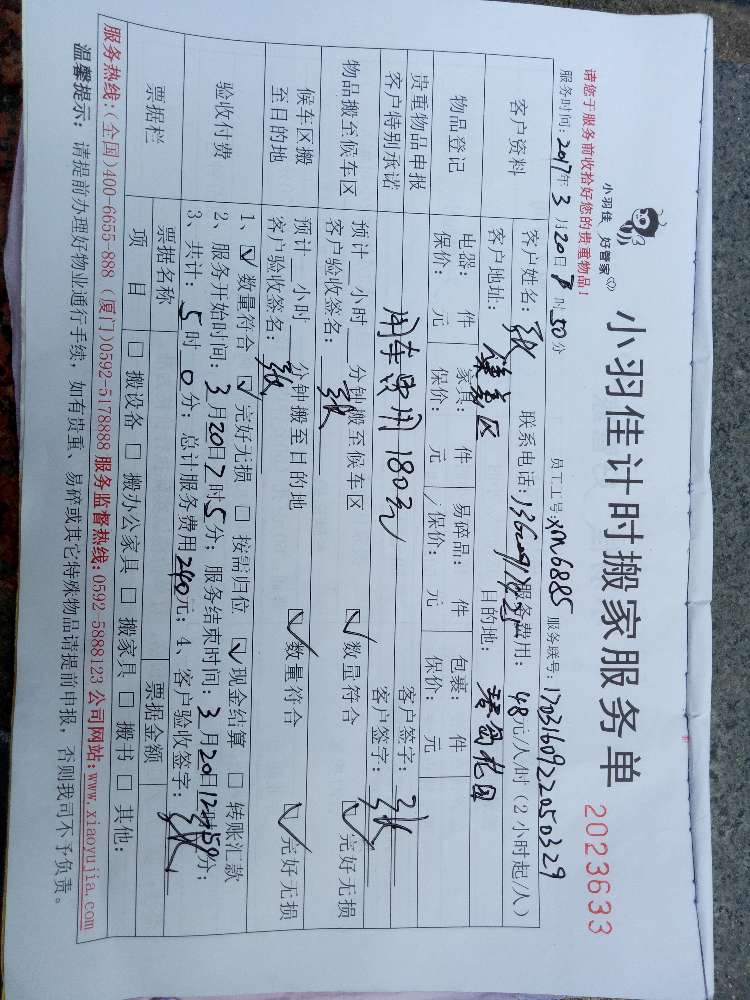 小羽佳 好管家
小羽佳计时搬家服务单 2023633
请您于服务前收拾好您的贵重物品!
服务时间: 2017年 3月20日8时50分 员工工号:XM6885 服务联号:170316092205 0329
客户资料
客户姓名: 张 联系电话: 服务费用: 48元/人/时(2小时起/人)
客户地址: 集美区 目的地:
物品登记
电器: 件 家具: 件 易碎品: 件 包裹: 件
保价: 元 保价: 元 保价: 元 保价: 元
贵重物品申报 客户签字: 张
客户特别承诺 用车费用180元 客户签字: 张
物品搬至候车区
预计__小时__分钟搬至候车区 ☑数量符合 ☑完好无损
客户验收签名: 张
候车区搬至目的地
预计__小时__分钟搬至目的地 ☑数量符合 ☑完好无损
客户验收签名: 张
验收付费
1、☑数量符合 ☑完好无损 □按需归位 ☑现金结算 □转账汇款
2、服务开始时间: 3月20日7时5分; 服务结束时间: 3月20日12时50分;
3、共计: 5时0分; 总计服务费用240元; 4、客户验收签字: 张
票据栏
票据名称 票据金额
项目 □搬设备 □搬办公家具 □搬家具 □搬书 □其他:
服务热线:(全国)400-6655-888 (厦门)0592-5178888 服务监督热线:0592-5888123 公司网站:www.xiaoyujia.com
温馨提示: 请提前办理好物业通行手续, 如有贵重、易碎或其它特殊物品请提前申报, 否则我司不予负责。